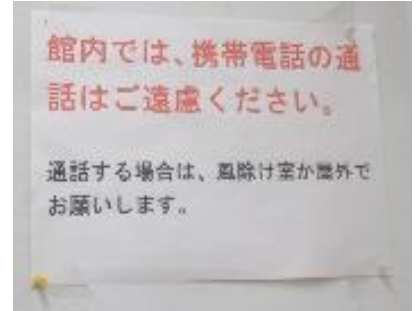 館内では、携帯電話の通
話はご遠慮ください。
通話する場合は、風除け室か屋外で
お願いします。